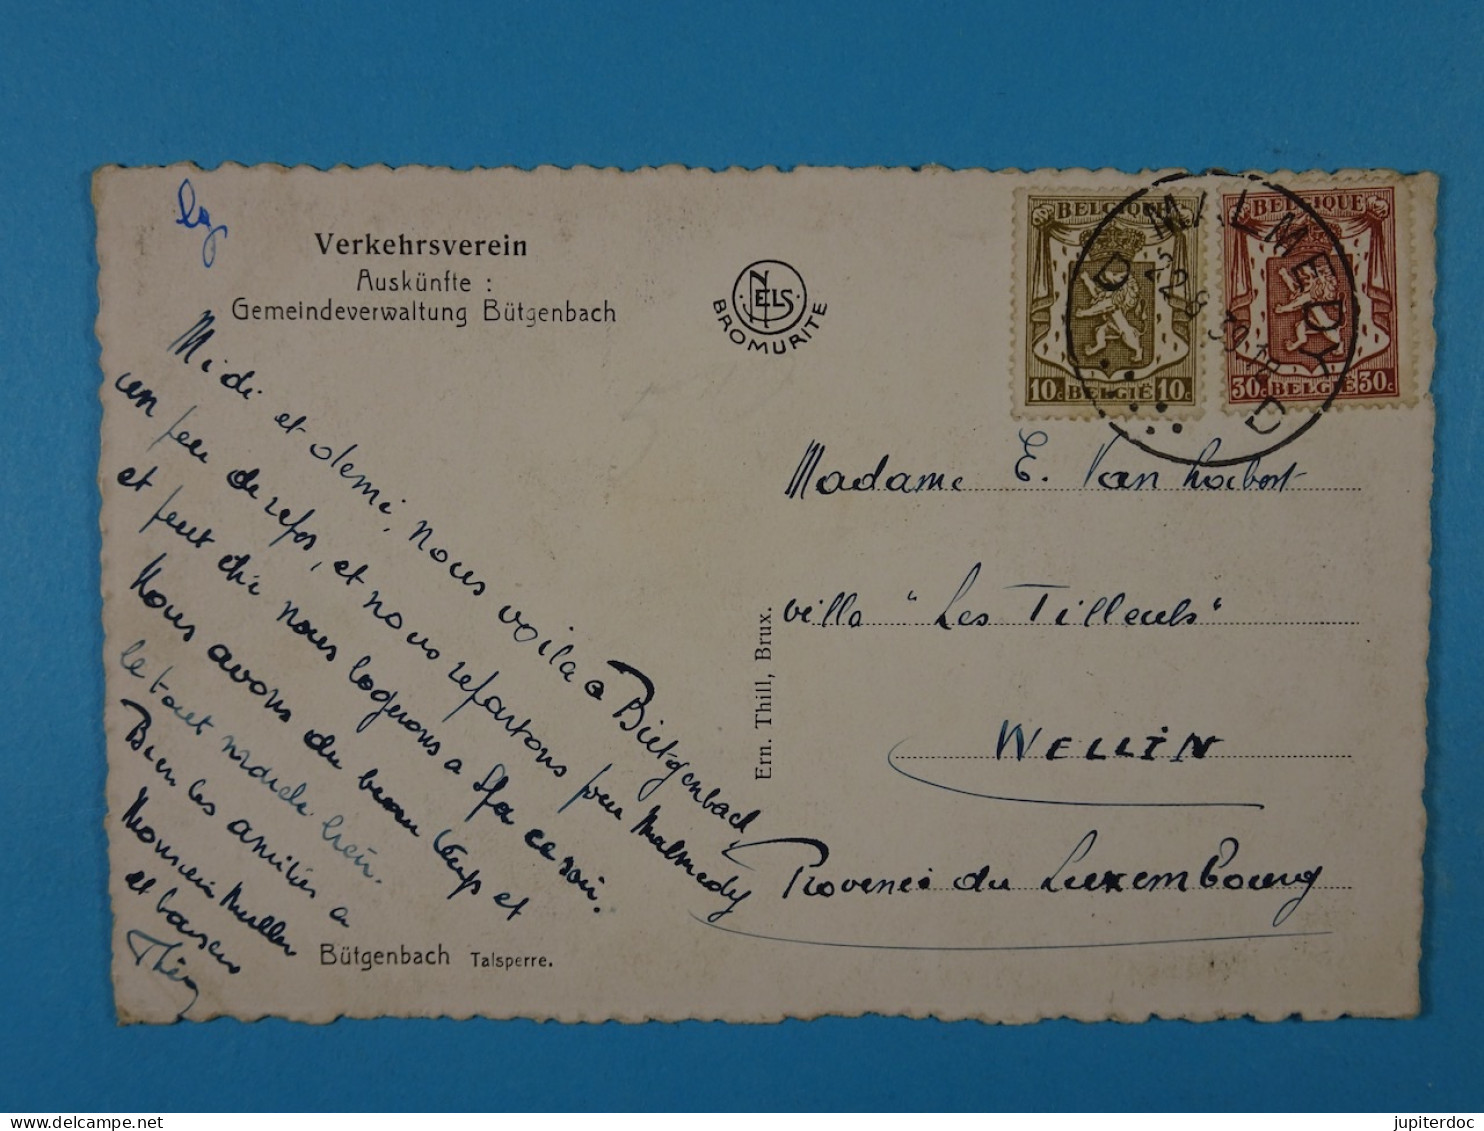 Verkehrsverein
Auskünfte :
Gemeindeverwaltung Bütgenbach
NELS
BROMURITE
BELGIQUE
10c BELGIË 10c
BELGIQUE
30c BELGIË 30c
MALMEDY
D D
22 8
Midi et demi, nous voila a Bütgenbach,
un peu de repos, et nous repartons pour Malmedy
et peut etre nous logerons a Spa ce soir.
Nous avons du beau temps et
le tout marche bien.
Bien les amitiés a
Monsieur Muller
et baisers
Madame E. Van
villa "Les Tilleuls"
WELLIN
Province du Luxembourg
Ern. Thill, Brux.
Bütgenbach Talsperre.
jupiterdoc
delcampe.net